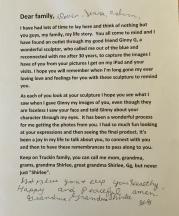 Dear family,
I have had lots of time to lay here and think of nothing but
you guys, my family, my life story. You all come to mind and I
have found an outlet through my good friend Ginny G, a
wonderful sculptor, who called me out of the blue and
reconnected with me after 30 years, to capture the images I
have of you from your pictures I get on my iPad and your
visits. I hope you will remember when I'm long gone my ever
loving love and feelings for you with these sculpture to remind
you.
As each of you look at your sculpture I hope you see what I
saw when I gave Ginny my images of you, even though they
are faceless I saw your face and told Ginny about your
character through my eyes. It has been a wonderful process
for me getting the photos from you. I had so much fun looking
at your expressions and then seeing the final product. It's
been a joy in my life to talk about you, to connect with you
and then to have these remembrances to pass along to you.
Keep on Truckin family, you can call me mom, grandma,
grams, grandma Shirlee, great grandma Shirlee, Gg, but never
just "Shirlee".
keep you healthy
Happy and peaceful
Grandma